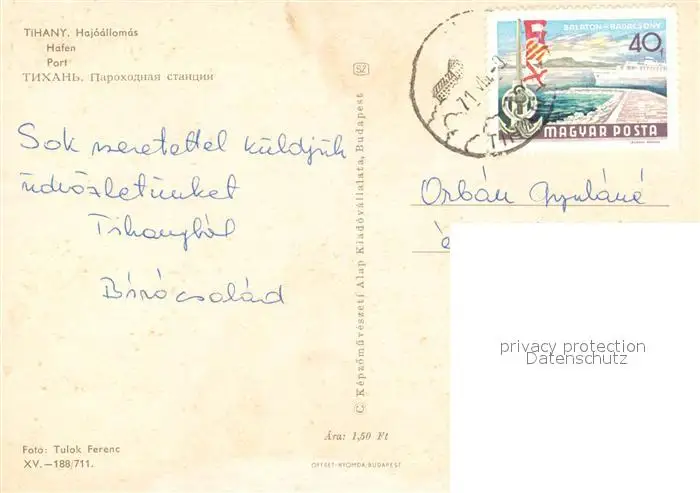 TIHANY. Hajóállomás
Hafen
Port
ТИХАНЬ. Пароходная станция
Sok szeretettel küldjük
üdvözletünket
Tihanyból
Bíró család
Foto: Tulok Ferenc
XV.—188/711.
© Képzőművészeti Alap Kiadóvállalata, Budapest
SZ
Ára: 1,50 Ft
OFFSET-NYOMDA, BUDAPEST
BALATON-BADACSONY
40f
MAGYAR POSTA
71 VIII.
Orbán Gyuláné
privacy protection
Datenschutz